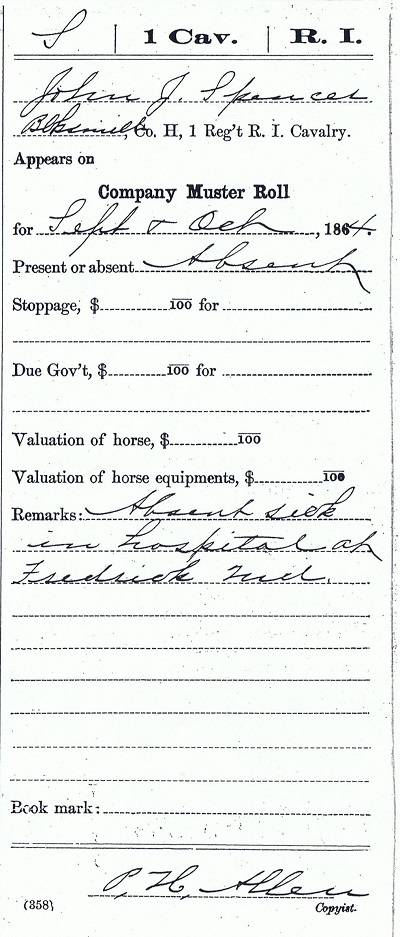 S | 1 Cav. | R. I.
John J. Spencer
Blksmith, Co. H, 1 Reg't R. I. Cavalry.
Appears on
Company Muster Roll
for Sept & Oct, 1864.
Present or absent Absent
Stoppage, $ 100 for
Due Gov't, $ 100 for
Valuation of horse, $ 100
Valuation of horse equipments, $ 100
Remarks: Absent sick
in hospital at
Fredrick Md.
Book mark:
P. H. Allen
(358) Copyist.